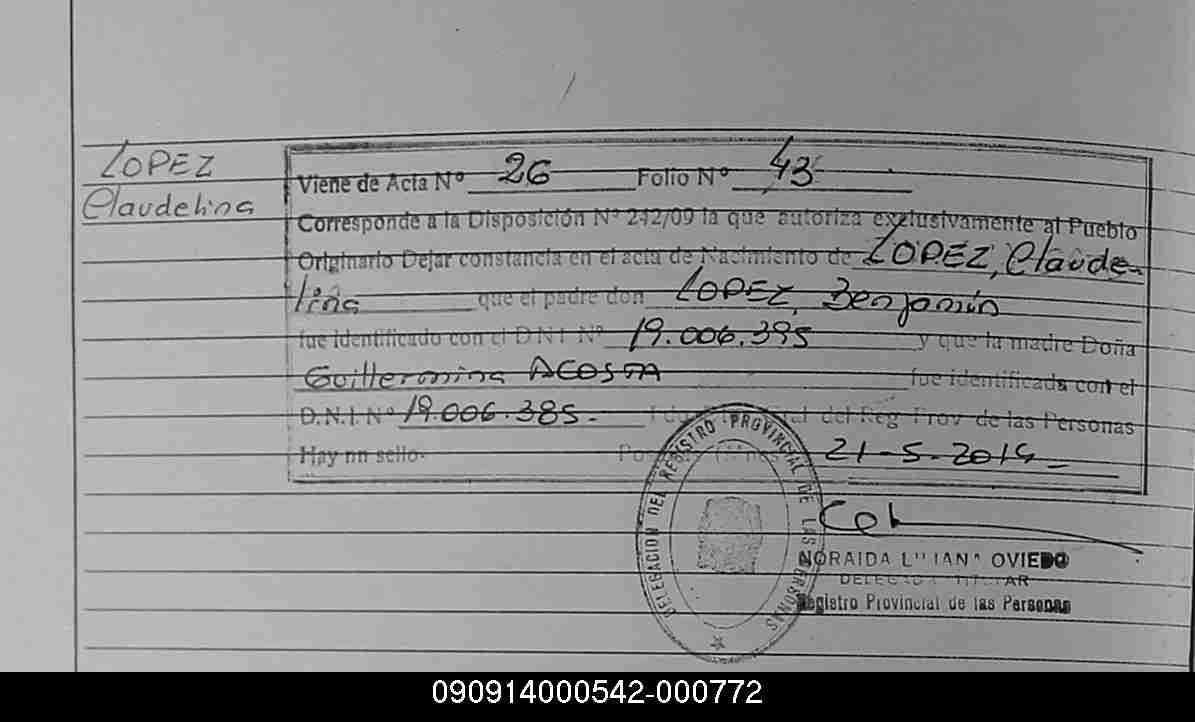 LOPEZ
Claudelina
Viene de Acta Nº 26 Folio Nº 43
Corresponde a la Disposición Nº 242/09 la que autoriza exclusivamente al Pueblo
Originario Dejar constancia en el acta de Nacimiento de LOPEZ, Claude-
lina que el padre don LOPEZ, Benjamín
fue identificado con el D.N.I. Nº 19.006.395 y que la madre Doña
Guillermina ACOSTA fue identificada con el
D.N.I. Nº 19.006.385.- del Reg Prov de las Personas
Hay nn sello- 21-5-2014_
DELEGACION DEL REGISTRO PROVINCIAL DE LAS PERSONAS
NORAIDA OVIEDO
Registro Provincial de las Personas
090914000542-000772